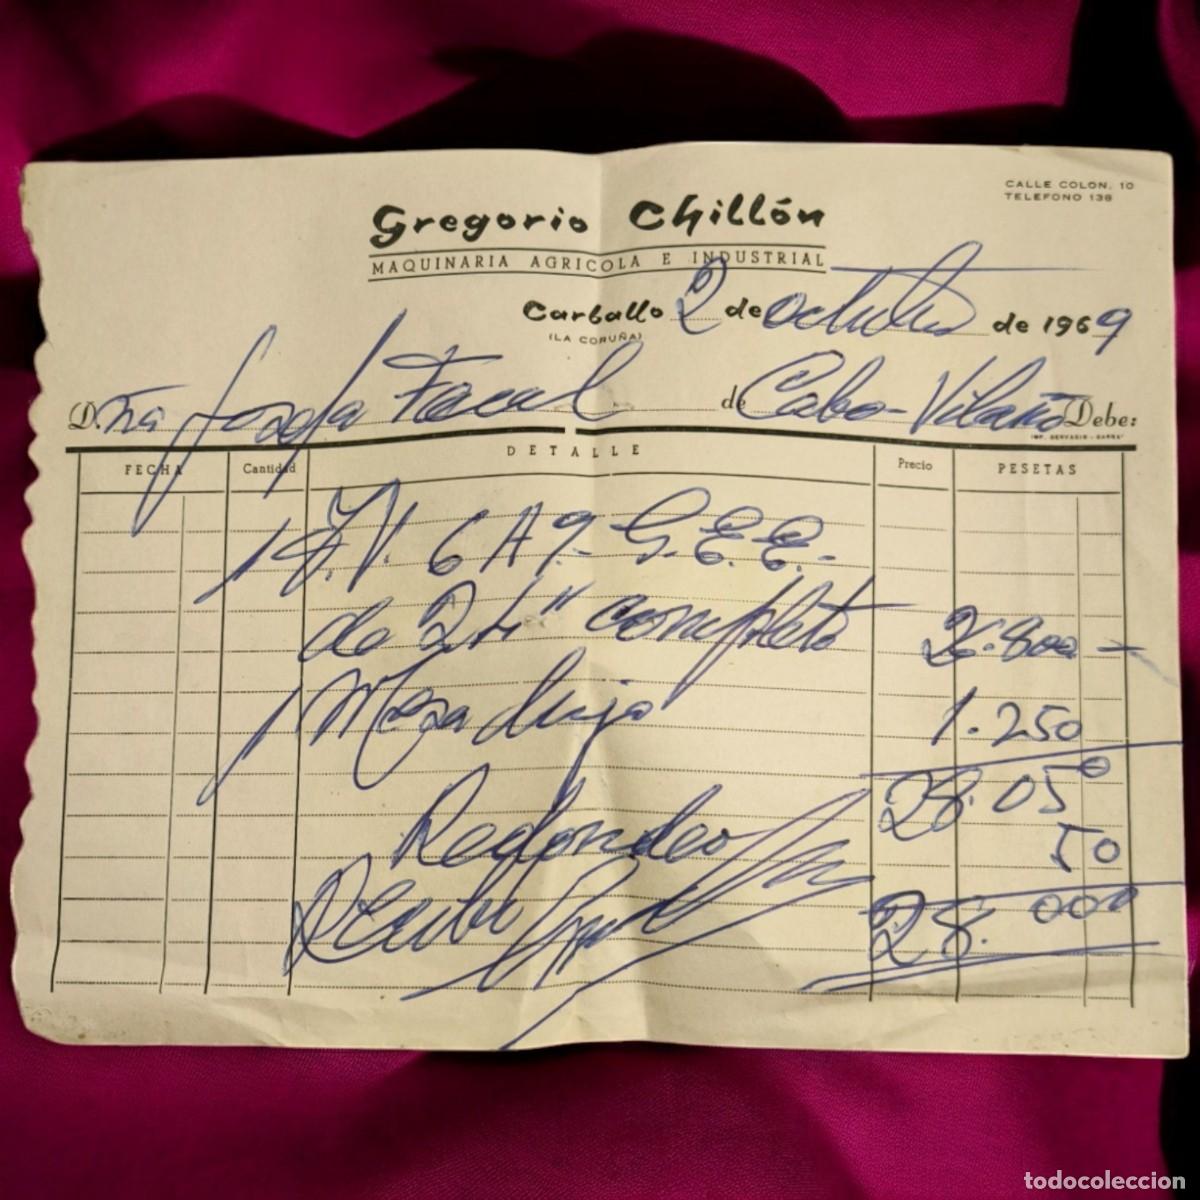 CALLE COLON, 10
TELEFONO 138
Gregorio Chillón
MAQUINARIA AGRICOLA E INDUSTRIAL
Carballo 2 de octubre de 1969
(LA CORUÑA)
D.ña Josefa Facal de Cabo-Vilaño Debe:
IMP. GERVASIO - BARRA
DETALLE
FECHA Cantidad Precio PESETAS
1 T.V. 6A9- G.E.E.-
de 24" completo 26.800 —
1 Mesa lujo 1.250
28.050
Redondeo 50
Recibi 28.000
todocoleccion